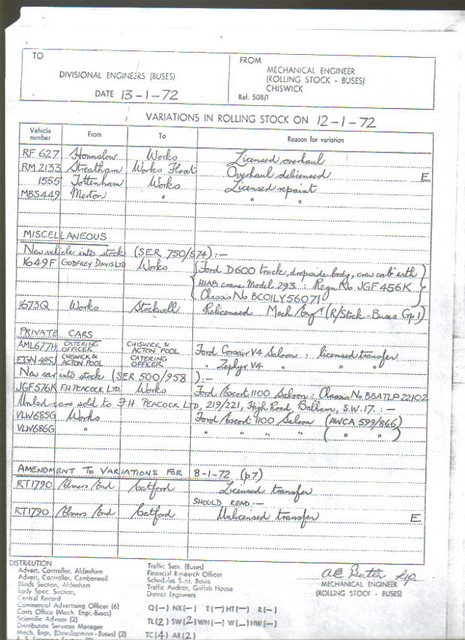 TO
DIVISIONAL ENGINEERS (BUSES)
DATE 13-1-72
FROM
MECHANICAL ENGINEER
(ROLLING STOCK - BUSES)
CHISWICK
Ref. 508/1
VARIATIONS IN ROLLING STOCK ON 12-1-72
Vehicle number From To Reason for variation
RF 627 Hounslow Works Licensed overhaul
RM 2133 Streatham Works Float Overhaul delicensed E
1555 Tottenham Works Licensed repaint
MBS449 Merton " " "
MISCELLANEOUS
New vehicle into stock (SER 750/574) :-
1649F GODFREY DAVIS LTD Works Ford D600 truck, dropside body, crew cab with
HIAB crane Model 293 : Regn No JGF 456K
Chassis No BCOILY56071
1673Q Works Stockwell Relicensed Mech/Eng'r (R/Stock-Buses Gp 1)
PRIVATE CARS
AML677H CATERING OFFICER CHISWICK & ACTON POOL Ford Corsair V4 Saloon : licensed transfer
CHISWICK & ACTON POOL CATERING OFFICER " Zephyr V4 " " "
New car into stock (SER 500/958) :-
JGF576K F.H PEACOCK LTD. Works Ford Escort 1100 Saloon : Chassis No BBATLP22102
cars sold to F.H. PEACOCK LTD, 219/221, High Road, Balham, S.W.17. :-
VLW685G Works Ford Escort 1100 Saloon (AWCA 599/866)
VLW686G " " " " ( " " )
AMENDMENT TO VARIATIONS FOR 8-1-72 (p7)
RT1790 Elmers End Catford Licensed transfer
SHOULD READ :-
RT1790 Elmers End Catford Unlicensed transfer E
DISTRIBUTION
Advert. Controller, Aldenham
Advert. Controller, Camberwell
Blinds Section, Aldenham
Body Spec. Section,
Central Record
Commercial Advertising Officer (6)
Costs Office (Mech. Engr.-Buses)
Scientific Adviser (2)
Distribution Services Manager
Mech. Engr. (Development - Buses) (2)
Traffic Supt. (Buses)
Financial Research Officer
Schedules Supt. Buses
Traffic Auditor, Griffith House
District Engineers
Q(-) NX(-) T(-) HT(-) R(-)
TL(2) SW(2) WN(-) W(-) HW(-)
TC(4) AR(2)
MECHANICAL ENGINEER
(ROLLING STOCK - BUSES)